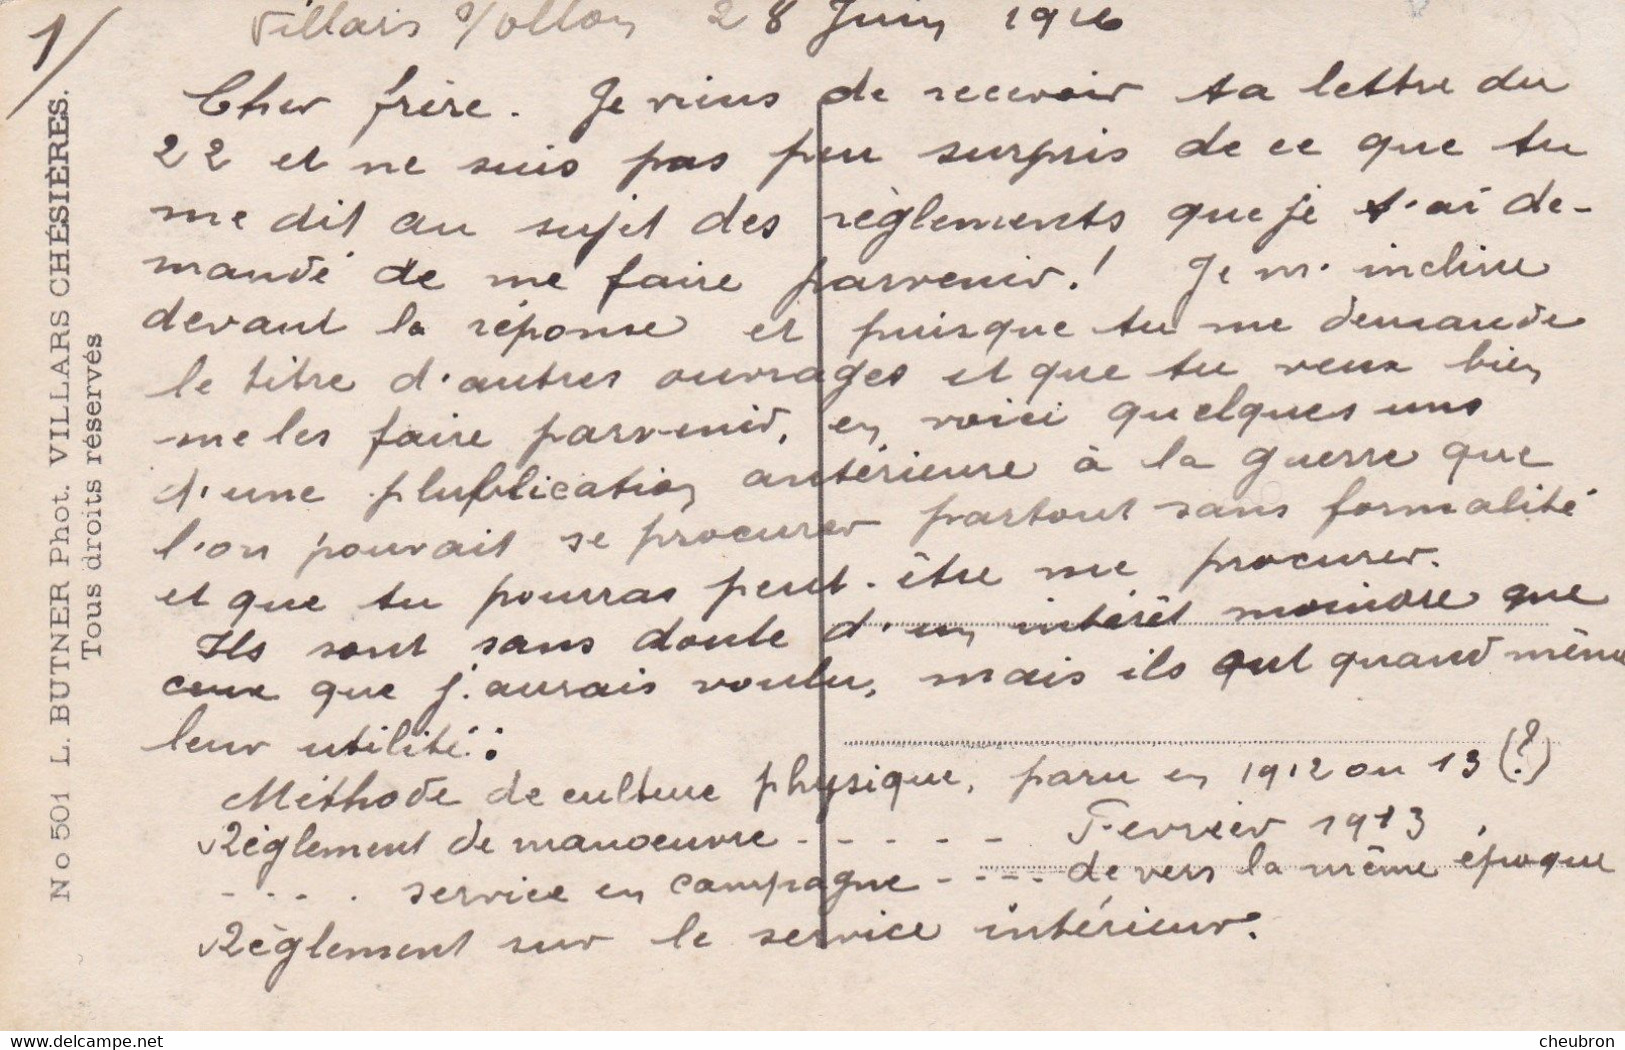 1/
Villars s/ollon 28 Juin 1916
Cher frère. Je viens de recevoir ta lettre du
22 et ne suis pas peu surpris de ce que tu
me dit au sujet des règlements que je t'ai de-
mandé de me faire parvenir! Je m'incline
devant la réponse et puisque tu me demande
le titre d'autres ouvrages et que tu veux bien
me les faire parvenir, en voici quelques uns
d'une plublication antérieure à la guerre que
l'on pouvait se procurer partout sans formalité
et que tu pourras peut-être me procurer.
Ils sont sans doute d'un intérêt moindre que
ceux que j'aurais voulu, mais ils ont quand même
leur utilité:
Méthode de culture physique, paru en 1912 ou 13 (?)
Règlement de manoeuvre - - - - - Fevrier 1913
- - - - service en campagne - - - - de vers la même époque
Règlement sur le service intérieur.
No 501 L. BUTNER Phot. VILLARS CHÉSIÈRES.
Tous droits réservés
www.delcampe.net
cheubron